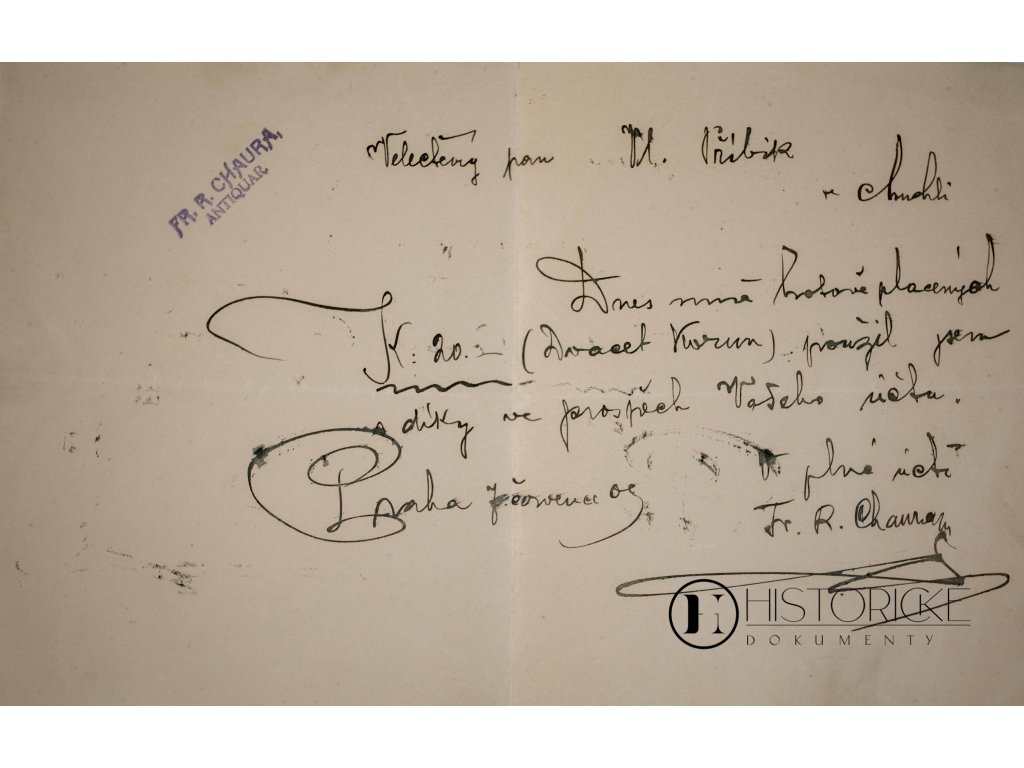 FR. R. CHAURA,
ANTIQUAR
Velectěný pan Vl. Přibik
v Chuchli
Dnes mně hotově placených
K: 20.- (Dvacet Korun) použil jsem
s díky ve prospěch Vašeho účtu.
Praha 7 července 09
V plné úctě
Fr. R. Chaura
HISTORICKÉ
DOKUMENTY